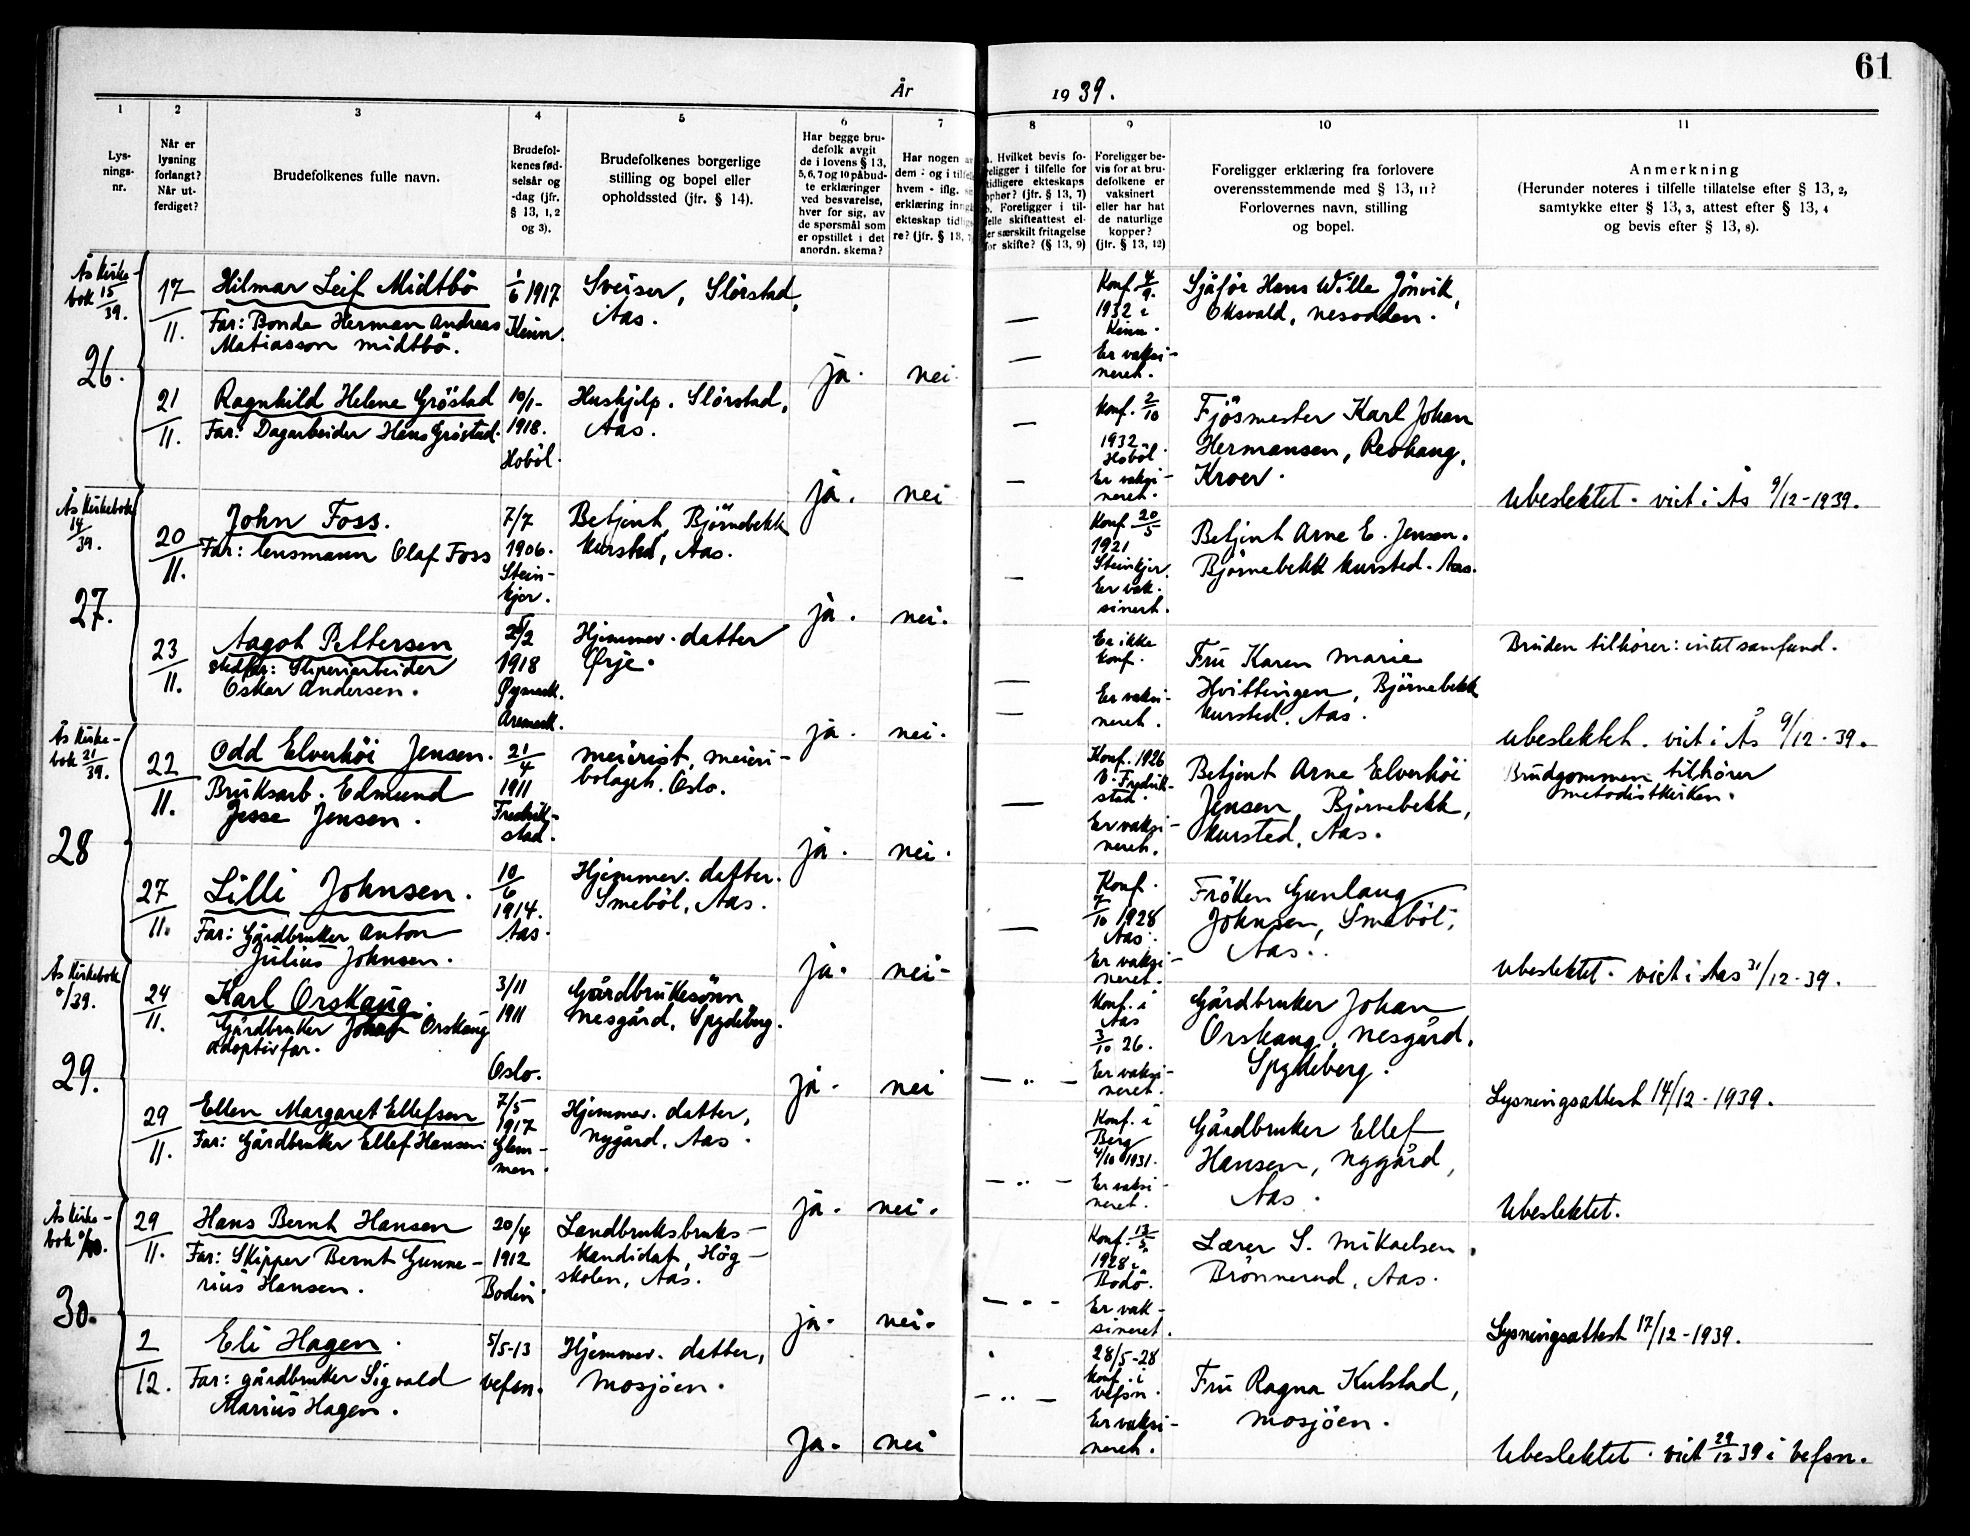 61
År 1939.
1
2
3
4
5
6
7
8
9
10
11
Lys-
nings-
nr.
Når er
lysning
forlangt?
Når ut-
ferdiget?
Brudefolkenes fulle navn.
Brudefol-
kenes fød-
selsår og
-dag (jfr.
§ 13, 1, 2
og 3).
Brudefolkenes borgerlige
stilling og bopel eller
opholdssted (jfr. § 14).
Har begge bru-
defolk avgit
de i lovens § 13,
5, 6, 7 og 10 påbud-
te erklæringer
ved besvarelse,
hver for sig, av
de spørsmål som
er opstillet i det
anordn. skema?
Har nogen av
dem - og i tilfelle
hvem - iflg.
erklæring inngått
ekteskap tidlige-
re? (jfr. § 13,
Hvilket bevis fo-
religger i tilfelle for
tidligere ekteskaps
ophør? (jfr. § 13, 7)
b. Foreligger i til-
felle skifteattest el-
ler særskilt fritagelse
for skifte? (§ 13, 9)
Foreligger be-
vis for at bru-
defolkene er
vaksinert
eller har hat
de naturlige
kopper?
(jfr. § 13, 12)
Foreligger erklæring fra forlovere
overensstemmende med § 13, 11?
Forlovernes navn, stilling
og bopel.
Anmerkning
(Herunder noteres i tilfelle tillatelse efter § 13, 2,
samtykke efter § 13, 3, attest efter § 13, 4
og bevis efter § 13, 8).
Ås Kirke-
bok 15/39.
26.
17/11.
Hilmar Leif Midtbö
Far: Bonde Herman Andreas
Matiasson Midtbö.
1/6 1917
Kinn.
Sveiser, Slörstad,
Aas.
ja.
nei.
—
—
Konf. 4/9.
1932 i
Kinn.
Er vaksi-
neret.
Sjåför Hans Wille Jönvik,
Oksvald, Nesodden.
21/11.
Ragnhild Helene Gröstad
Far: Dagarbeider Hans Gröstad.
10/1-
1918.
Hoböl.
Hushjelp. Slörstad,
Aas.
ja.
nei
—
—
Konf. 2/10
1932
Hoböl.
Er vaksi-
neret.
Fjösmester Karl Johan
Hermansen, Revhaug,
Kroer.
Ubeslektet. viet i Ås 9/12-1939.
Ås Kirkebok
14/39.
27.
20/11.
John Foss.
Far: lensmann Olaf Foss
7/7
1906.
Stein-
kjer.
Betjent, Björnebekk
kursted, Aas.
ja.
nei.
—
Konf. 20/5
1921
Steinkjer.
Er vak-
sinert.
Betjent Arne E. Jensen.
Björnebekk kursted. Aas.
23/11.
Aagot Pettersen
stedfar: Sliperiarbeider
Oskar Andersen.
2
1918
Øymark.
Aremark.
Hjemmev. datter
Ørje.
ja.
nei.
—
—
Er ikke
konf.
Er vaksi-
neret.
Fru Karen Marie
Hvittingen, Björnebekk
kursted. Aas.
Bruden tilhörer: intet samfund.
Ubeslektet. viet i Ås 9/12-39.
Ås Kirke-
bok 21/39.
28
22/11.
Odd Elverhöi Jensen.
Bruksarb. Edmund
Jesse Jensen.
21/4
1911
Fredrik-
stad.
Meierist, meieri-
bolaget. Oslo.
ja.
nei.
—
Konf. 1926
V. Fredrik-
stad.
Er vaksi-
neret.
Betjent Arne Elverhöi
Jensen, Björnebekk,
kursted, Aas.
Brudgommen tilhörer
metodistkirken.
27/11.
Lilli Johnsen.
Far: Gårdbruker Anton
Julius Johnsen.
10/6
1914.
Aas.
Hjemmev. datter.
Smeböl, Aas.
ja.
nei-
—
Konf.
7/10 1928
Aas.
Er vaksi-
neret.
Fröken Gunlaug
Johnsen, Smeböl,
Aas.
Ubeslektet. viet i Aas 31/12-39.
Ås Kirkebok
0/39.
29.
24/11.
Karl Orskaug.
Gårdbruker Johan Orskaug
adoptivfar.
3/11
1911
Oslo.
Gårdbrukesönn
Nesgård, Spydeberg.
ja.
nei
— „ —
Konf. i
Aas
3/10 26.
Er vaksi-
neret.
Gårdbruker Johan
Orskaug, Nesgård,
Spydeberg.
Lysningsattest 14/12-1939.
29/11.
Ellen Margaret Ellefsen
Far: Gårdbruker Ellef Hansen
7/5-
1917
Glem-
men.
Hjemmev. datter,
Nygård, Aas.
ja.
nei.
— „ —
Konf. i
Berg
4/10 1931.
Er vaksi-
neret.
Gårdbruker Ellef
Hansen, Nygård,
Aas.
Ubeslektet.
Ås Kirke-
bok 0/40.
30.
29/11.
Hans Bernt Hansen
Far: Skipper Bernt Gunne-
rius Hansen.
20/4
1912
Bodin
Landbruksbruks-
kandidat, Hög-
skolen, Aas.
ja.
nei.
— „ —
Konf. 13/5
1928 i
Bodö.
Er vak-
sineret.
Lærer S. Mikaelsen,
Brönnerud, Aas.
Lysningsattest 17/12-1939.
2/12.
Eli Hagen.
Far: gårdbruker Sigvald
Marius Hagen.
5/5-13
Vefsn.
Hjemmev. datter,
Mosjöen.
Ja.
nei
— „ —
28/5-28
konf. i
Vefsn.
Er vaksi-
neret.
Fru Ragna Kulstad,
Mosjöen.
Ubeslektet. viet 29/12 39 i Vefsn.